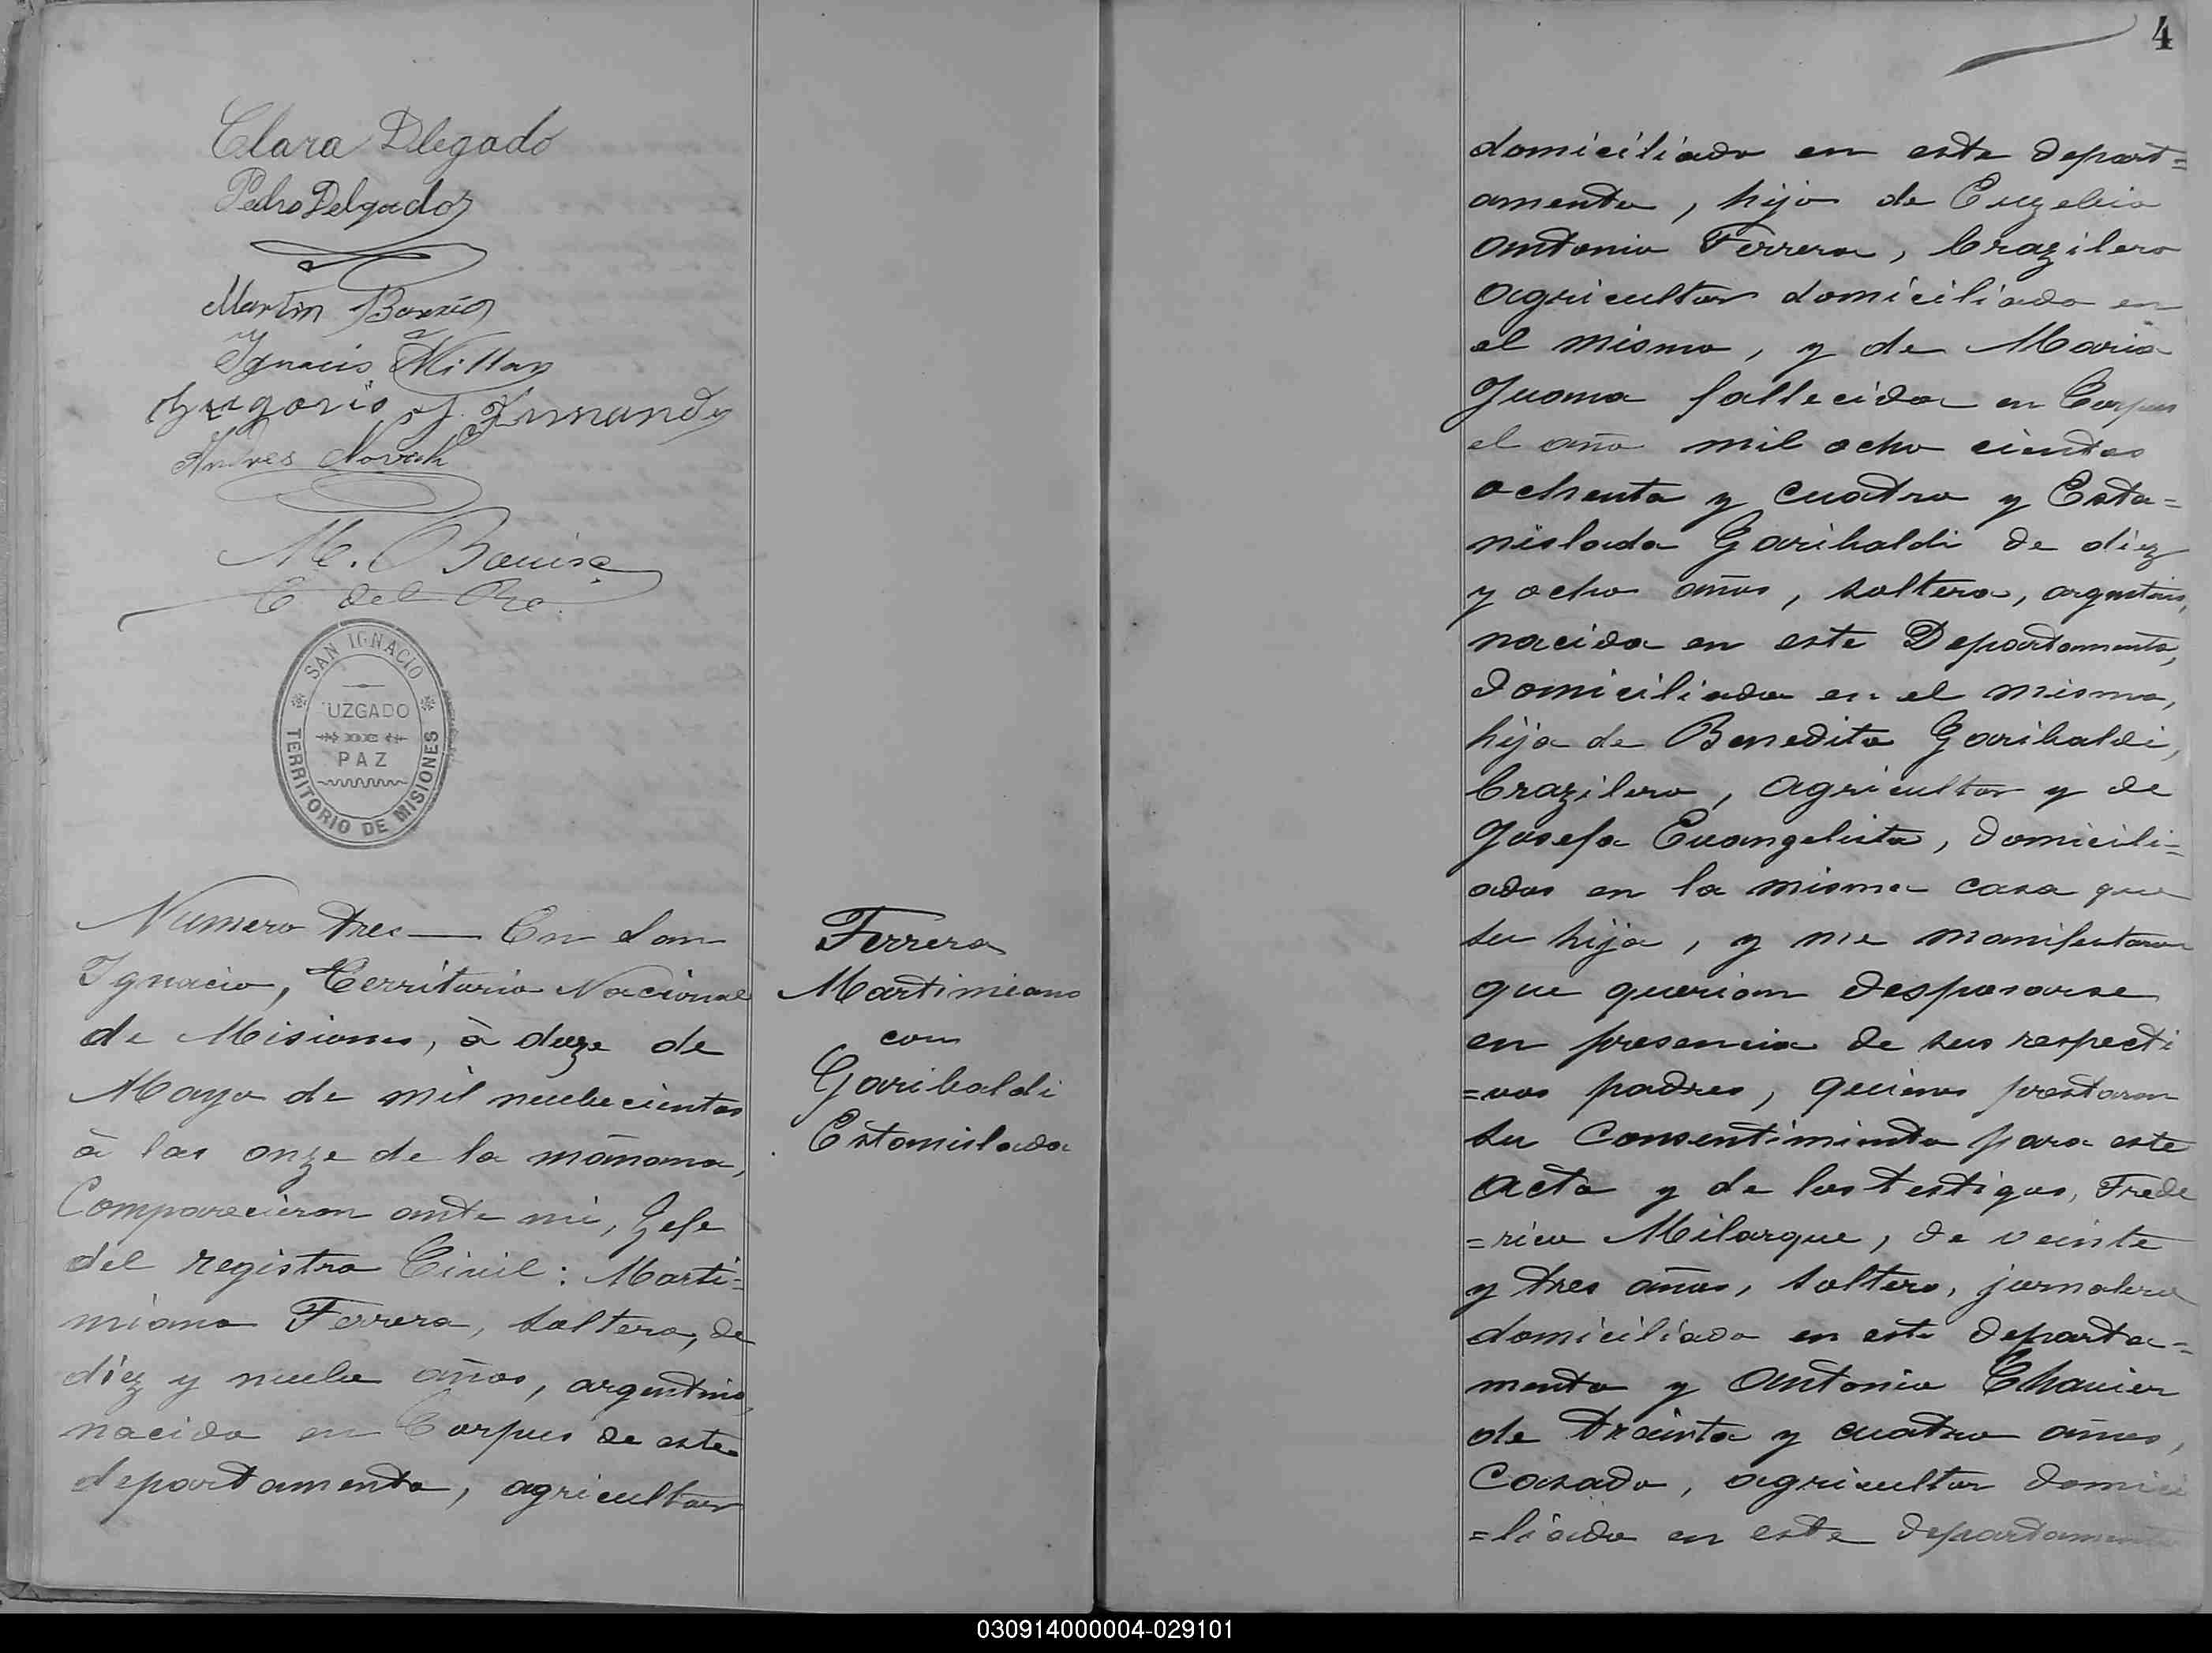 Clara Dlegado
Pedro Delgado
Martin Barrio
Ignacio Millan
Gregorio J. Fernandes
Andres Novak
M. Bauisa
E del Rro.
SAN IGNACIO
JUZGADO
DE
PAZ
TERRITORIO DE MISIONES
Numero tres — En San
Ignacio, Territorio Nacional
de Misiones, à doze de
Mayo de mil nuebecientos
à las onze de la mañana,
Comparecieron ante mi, Gefe
del registro Civil: Marti=
miano Ferrera, soltero, de
diez y nuebe años, argentino,
nacido en Corpus de este
departamento, agricultor
Ferrera
Martimiano
con
Garibaldi
Estanislada
4
domiciliado en este depart=
amento, hijo de Euzebio
Antonio Ferrera, brazilero
agricultor domiciliado en
el mismo, y de Maria
Juana fallecida en Corpus
el año mil ocho cientos
ochenta y cuatro y Esta=
nislada Garibaldi de diez
y ocho años, soltera, argentina,
nacida en este Departamento,
domiciliada en el mismo,
hija de Benedito Garibaldi,
brazilero, agricultor y de
Josefa Evangelista, domicili=
ados en la misma casa que
su hija, y me manifestaron
que querian desposarse
en presencia de sus respecti
=vos padres, quienes prestaron
su consentimiento para este
acto y de los testigos, Frede
=rico Milarque, de veinte
y tres años, soltero, jornalero
domiciliado en este departa=
mento y Antonio Chavier
de treinta y cuatro años,
Casado, agricultor domici
=liado en este departamento
030914000004-029101